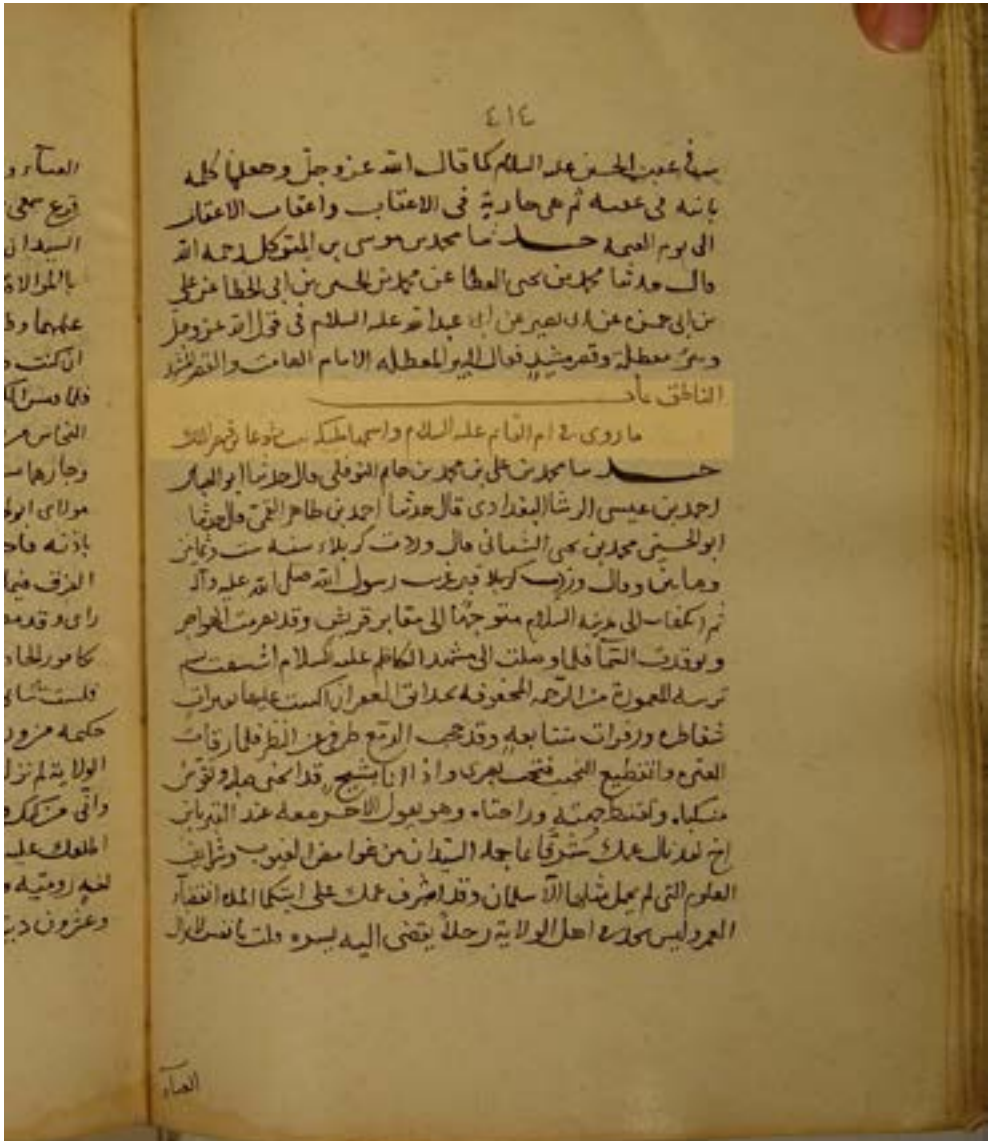 ٤١٤
في عقب الحسين عليه السلام كما قال الله عز وجل وجعلها كلمة
باقية في عقبه ثم هي جارية في الاعقاب واعقاب الاعقاب
الى يوم القيمة حدثنا محمد بن موسى بن المتوكل رحمه الله
قال حدثنا محمد بن يحيى العطار عن محمد بن الحسين بن ابي الخطاب عن علي
بن ابي حمزة عن ابي بصير عن ابي عبد الله عليه السلام في قول الله عز وجل
وبئر معطلة وقصر مشيد فقال البئر المعطلة الامام الصامت والقصر المشيد
الناطق باب
ما روي في ام القائم عليه السلام واسمها مليكة بنت يشوعا بن قيصر الملك
حدثنا محمد بن علي بن محمد بن حاتم النوفلي قال حدثنا ابو العباس
احمد بن عيسى الوشا البغدادي قال حدثنا احمد بن طاهر القمي قال حدثنا
ابو الحسين محمد بن يحيى الشيباني قال وردت كربلاء سنة ست وثمانين
ومايتين وقال وزرت كربلا قبر غريب رسول الله صلى الله عليه وآله
ثم انكفات الى مدينة السلام متوجها الى مقابر قريش وقد تضرمت الهواجر
وتوقدت السما فلما وصلت الى مشهد الكاظم عليه السلام استنشقت نسيم
تربته المغمورة من الرحمة المحفوفة بحدائق الغفران اكببت عليها بعبرات
متقاطرة وزفرات متتابعة وقد حجب الدمع طرفي عن النظر فلما رقات
العبرة وانقطع النحيب فتحت بصري واذا انا بشيخ قد انحنى صلبه وتقوس
منكباه وثفنت جبهته وراحتاه وهو يقول لاخر معه عند القبر يابن
اخ لقد نال عمك شرفا بما حمله السيدان من غوامض الغيوب وشرائف
العلوم التي لم يحمل مثلها الا سلمان وقد اشرف عمك على استكمال المدة وانقضاء
العمر وليس يجد في اهل الولاية رجلا يفضي اليه بسره قلت يا نفس لا يزال
العناء
العناء و
قرع سمعي
السيدان
بالموالاة
علمهما و
ان كنت
النحاس
وجارهما
مولاي ابو
باذنه
الغرف فيما
راى وقد
كافور الخادم
حكيمة
الولاية لم تزل
واني